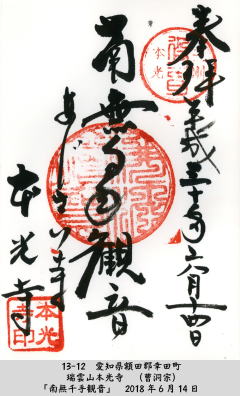 奉拝 平成三十年六月十四日
南無千手観音
本光寺
本光寺印
13-12　愛知県額田郡幸田町
瑞雲山本光寺　(曹洞宗)
「南無千手観音」　2018年6月14日